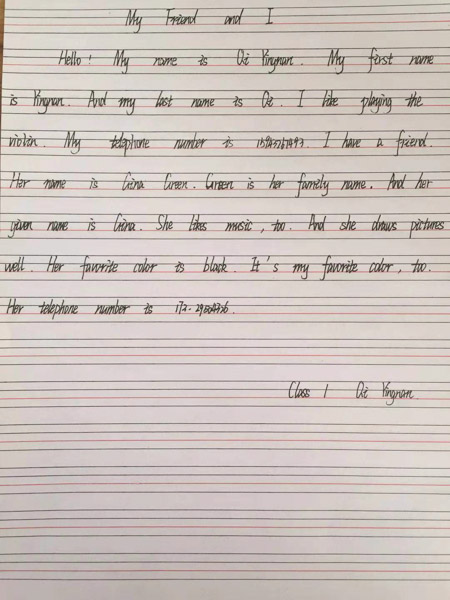 My Friend and I
Hello! My name is Qi Yingnan. My first name
is Yingnan. And my last name is Qi. I like playing the
violin. My telephone number is I have a friend.
Her name is Gina Green. Green is her family name. And her
given name is Gina. She likes music, too. And she draws pictures
well. Her favorite color is black. It's my favorite color, too.
Her telephone number is
Class 1 Qi Yingnan